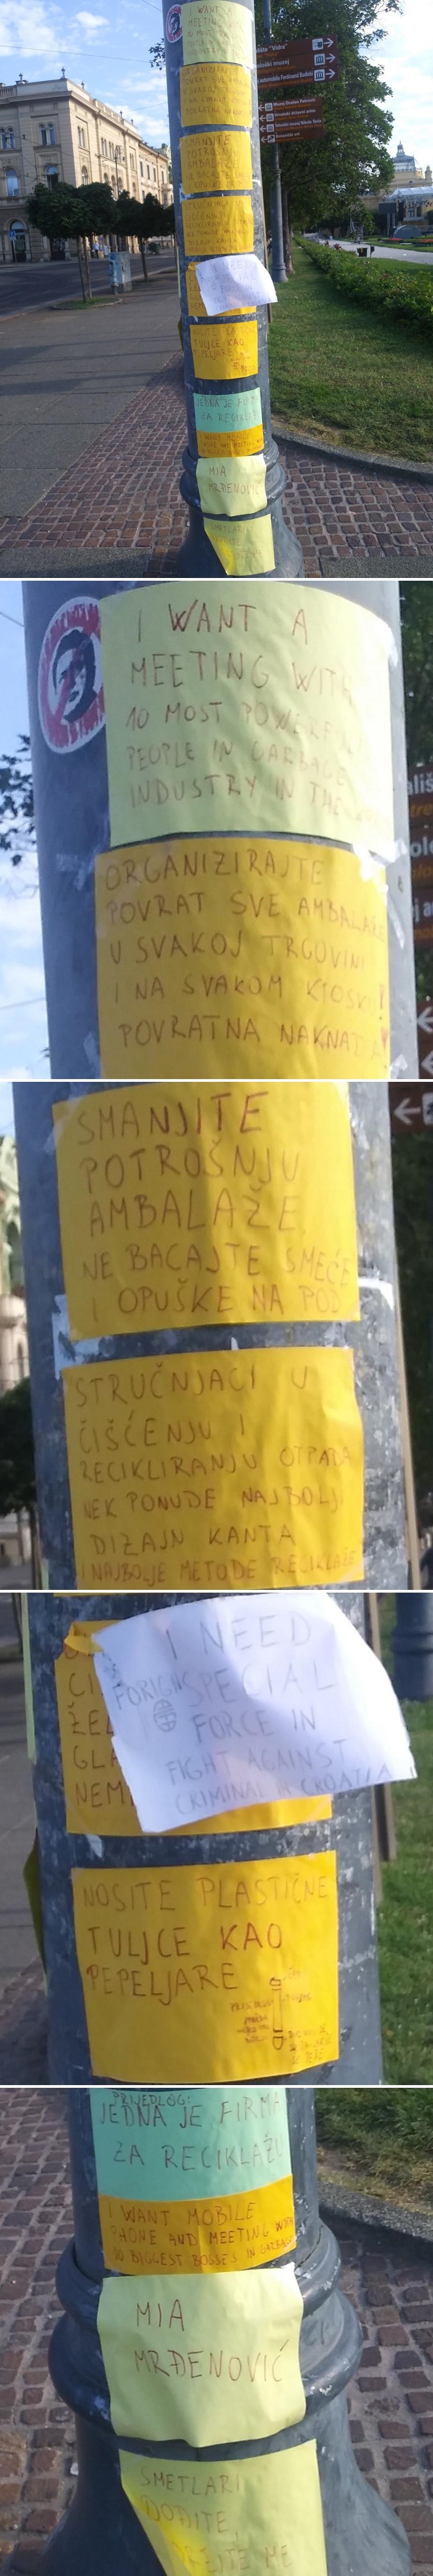 I WANT A
MEETING WITH
10 MOST POWERFUL
PEOPLE IN GARBAGE
INDUSTRY IN THE
ORGANIZIRAJTE
POVRAT SVE AMBALAŽE
U SVAKOJ TRGOVINI
I NA SVAKOM KIOSKU!
POVRATNA NAKNADA!
SMANJITE
POTROŠNJU
AMBALAŽE
NE BACAJTE SMEĆE
I OPUŠKE NA POD
STRUČNJACI U
ČIŠĆENJU I
RECIKLIRANJU OTPADA
NEK PONUDE NAJBOLJI
DIZAJN KANTA
I NAJBOLJE METODE RECIKLAŽE
I NEED
FORIGN SPECIAL
FORCE IN
FIGHT AGAINST
CRIMINAL IN CROATIA
ŽEL
GLA
NEM
NOSITE PLASTIČNE
TULJCE KAO
PEPELJARE
PRIJEDLOG:
JEDNA JE FIRMA
ZA RECIKLAŽU
I WANT MOBILE
PHONE AND MEETING WITH
10 BIGGEST BOSSES IN GARBAGE
MIA
MRĐENOVIĆ
SMETLARI
DOĐITE
ME